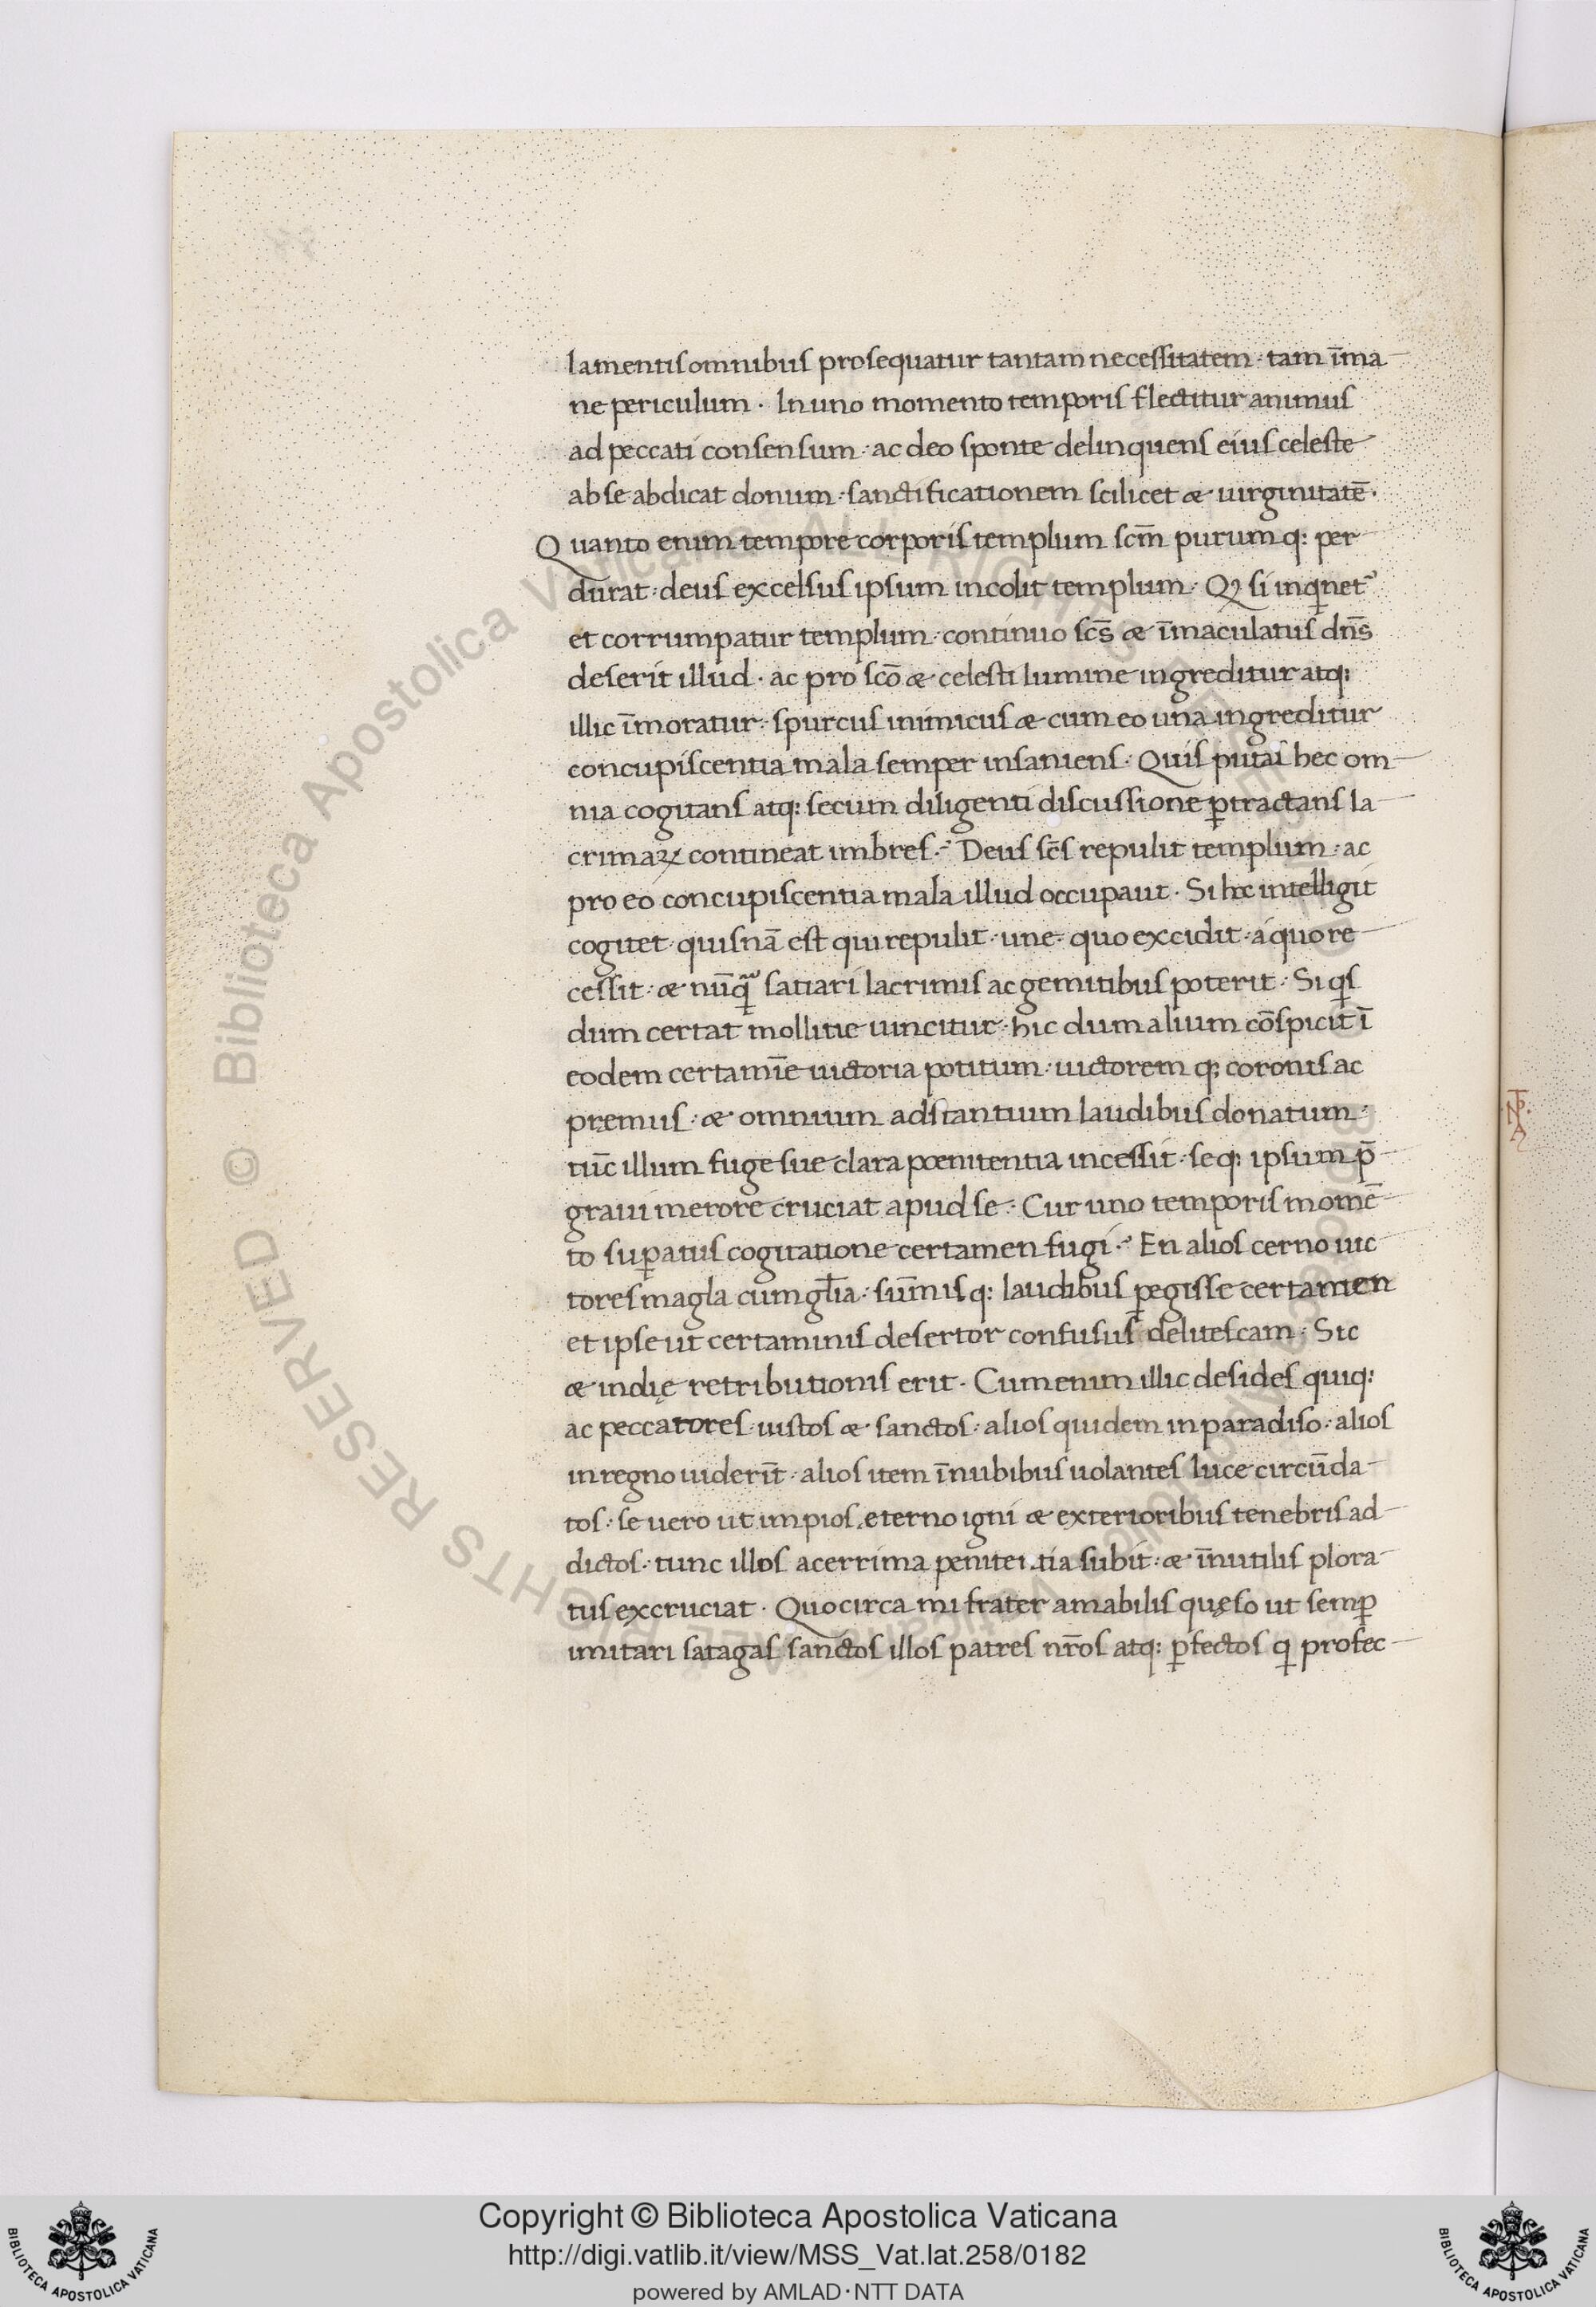 lamentis omnibus prosequatur tantam necessitatem · tam īma
ne periculum · In uno momento temporis flectitur animus
ad peccati consensum · ac deo sponte delinquens eius celeste
ab se abdicat donum · sanctificationem scilicet æ uirginitatē ·
Quanto enim tempore corporis templum scm̄ purum q: per
durat · deus excelsus ipsum incolit templum · Qꝫ si inqnet᷑
et corrumpatur templum · continuo scs̄ æ īmaculatus dns̄
deserit illud · ac pro scō æ celesti lumine ingreditur atq:
illic īmoratur · spurcus inimicus æ cum eo una ingreditur
concupiscentia mala semper insaniens · Quis putas hec om
nia cogitans atq: secum diligenti discussione ꝑtractans la
crimaꝝ contineat imbres ·? Deus scs̄ repulit templum · ac
pro eo concupiscentia mala illud occupauit · Si hoc intelligit
cogitet · quisnā est qui repulit · une · quo excidit · á quo re
cessit · æ nūq̄ satiari lacrimis ac gemitibus poterit · Si qs
dum certat mollitie uincitur · hic dum alium cōspicit ī
eodem certamīe uictoria potitum · uictorem q; coronis ac
pręmiis · æ omnium adstantium laudibus donatum ·
tūc illum fuge sue clara poenitentia incessit · seq: ipsum p̄
graui merore cruciat apud se · Cur uno temporis momē
to suꝑatus cogitatione certamen fugi ·? En alios cerno uic
tores magla cum gl̄ia · sūmis q: laudibus ꝑegisse certamen
et ipse ut certaminis desertor confusus delitescam · Sic
æ in dię retributionis erit · Cum enim illic desides quiq:
ac peccatores · iustos æ sanctos · alios quidem in paradiso · alios
in regno uiderīt · alios item ī nubibus uolantes luce circūda
tos · se uero ut impios eterno igni æ exterioribus tenebris ad
dictos · tunc illos acerrima penitentia subit · æ īnutilis plora
tus excruciat · Quocirca mi frater amabilis quęso ut semꝑ
imitari satagas sanctos illos patres nr̄os atq: ꝑfectos q profec
Copyright © Biblioteca Apostolica Vaticana
http://digi.vatlib.it/view/MSS_Vat.lat.258/0182
powered by AMLAD·NTT DATA